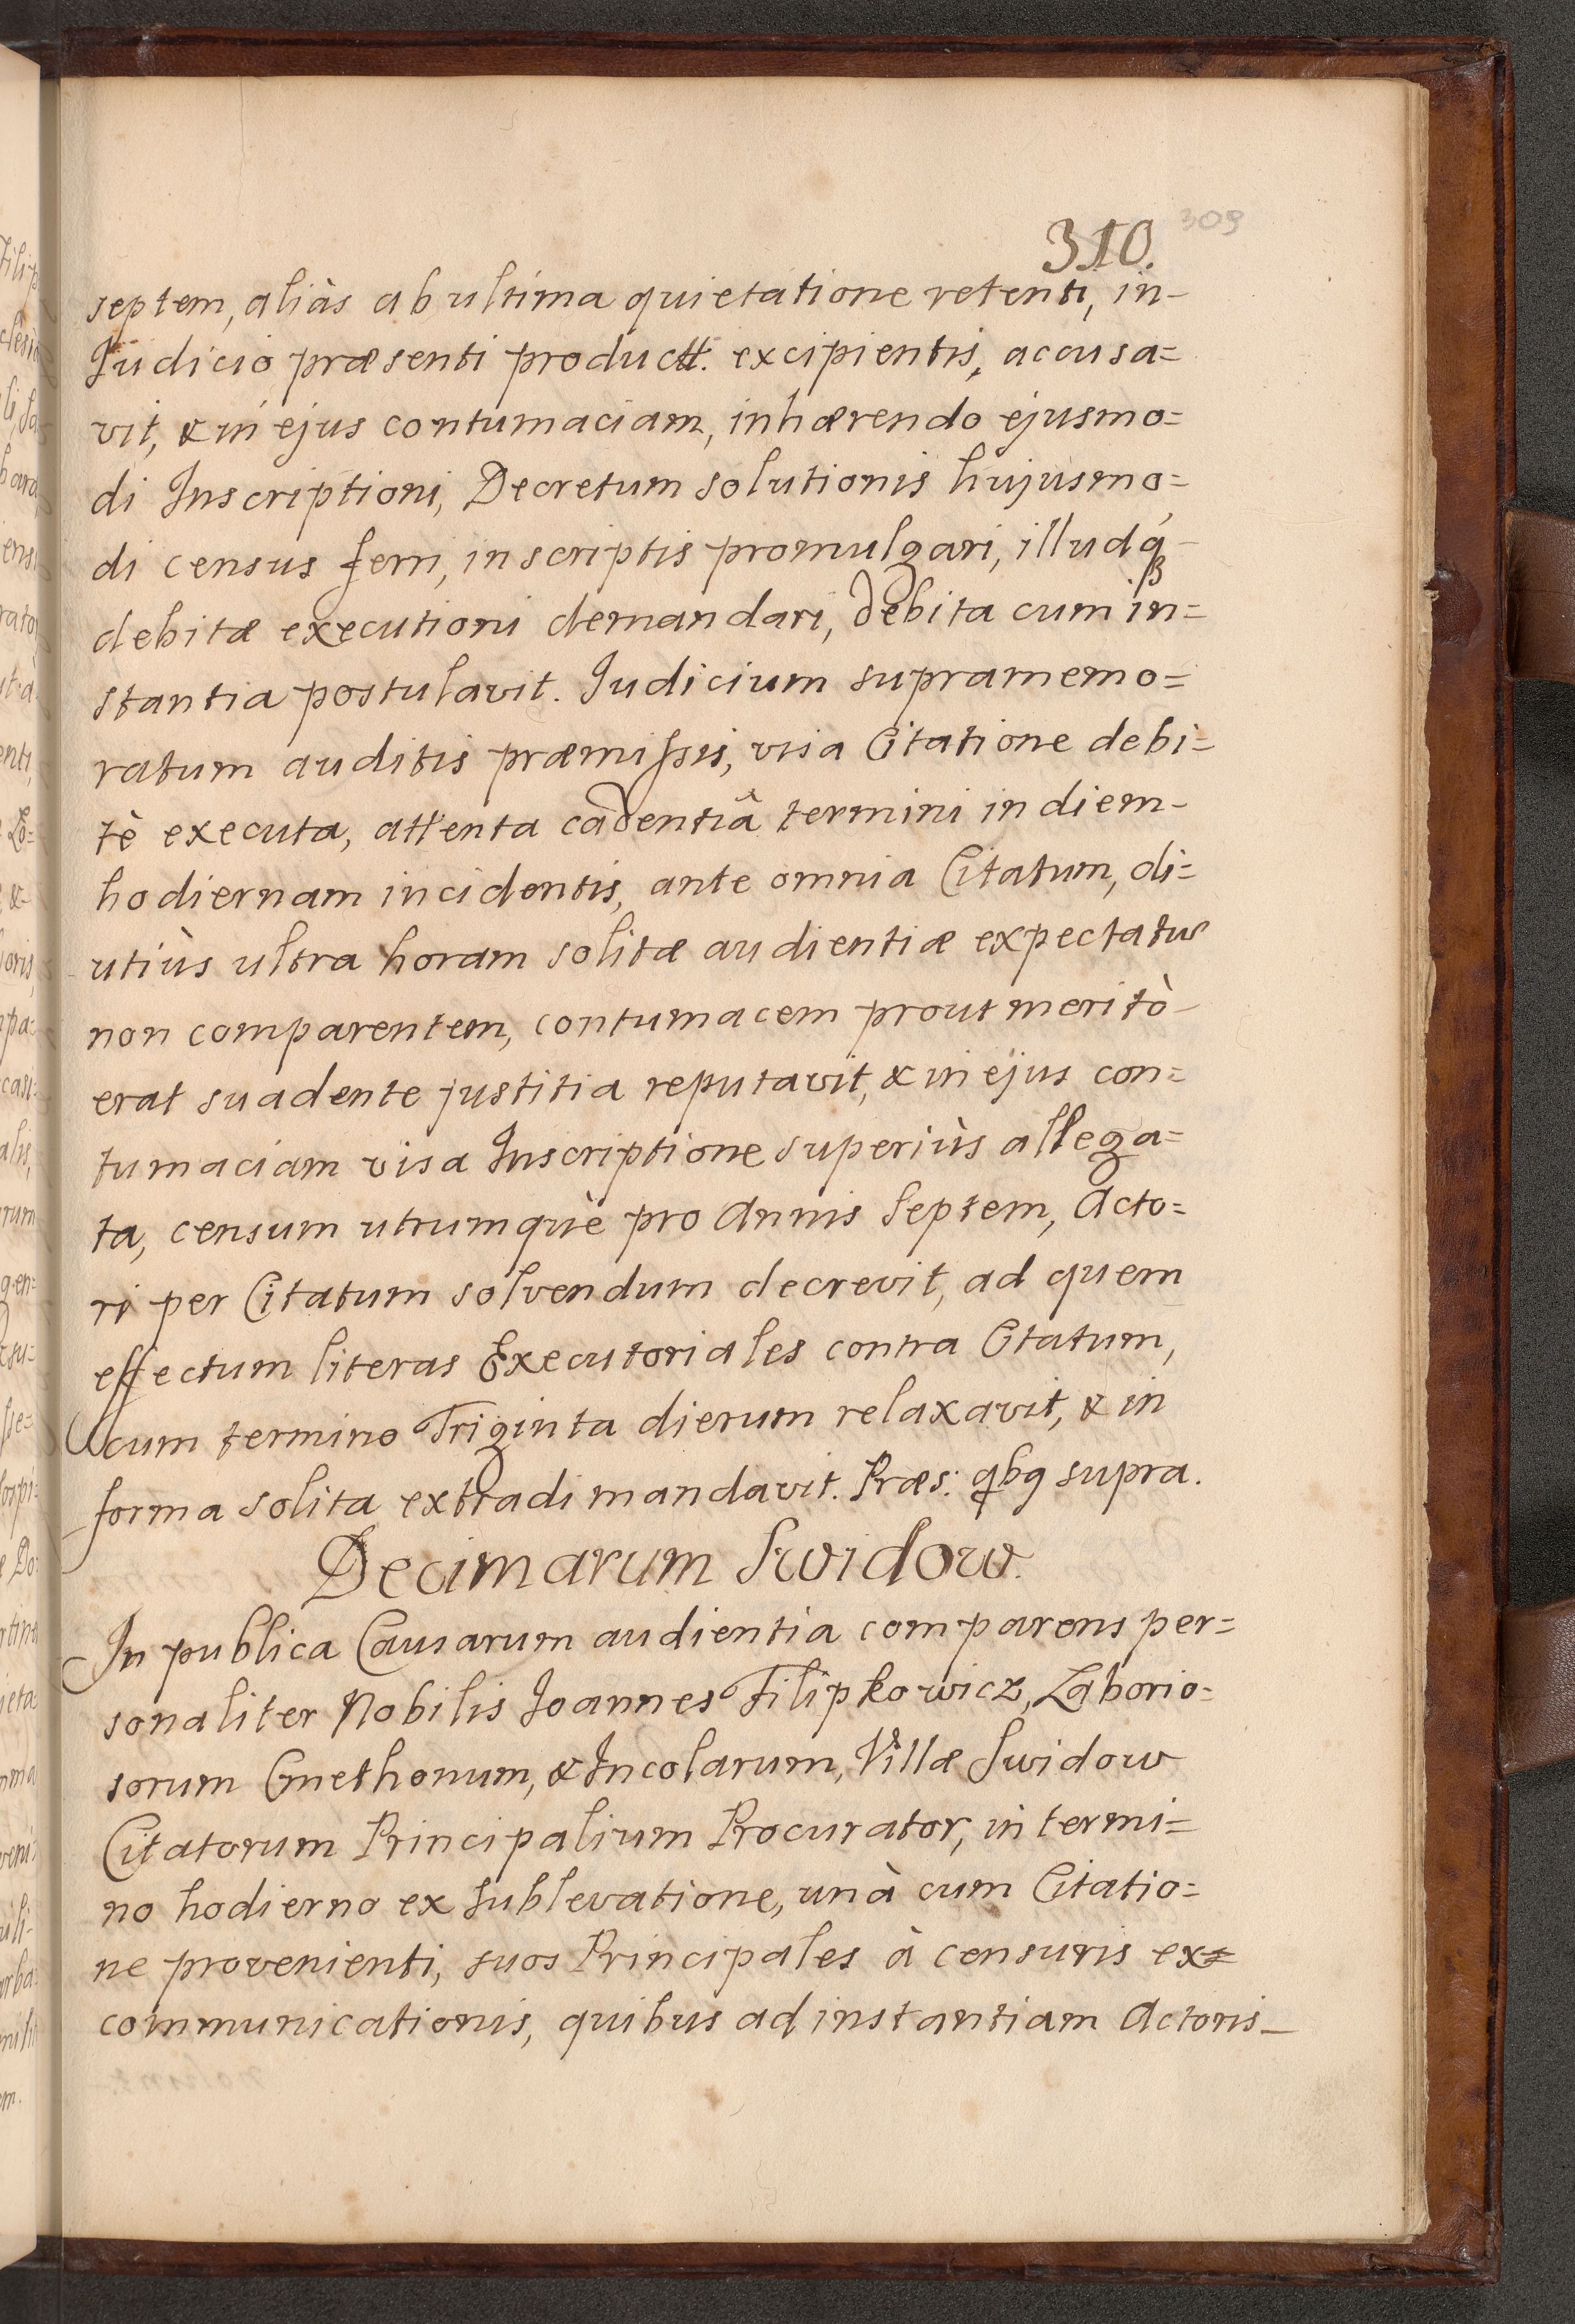 310. 309
septem, aliàs ab ultima quietatione retenti, in-
Judicio præsenti productt. excipientis, accusa=
vit, & in ejus contumaciam, inhærendo ejusmo=
di Inscriptioni, Decretum solutionis hujusmo=
di census ferri, in scriptis promulgari, illudq́₃-
debitæ executioni demandari, debita cum in=
stantia postulavit. Judicium supramemo=
ratum auditis præmissis, visa Citatione debi=
tè executa, attenta cadentiâ termini in diem-
hodiernam incidentis, ante omnia Citatum, di=
utiùs ultra horam solitæ audientiæ expectatum
non comparentem, contumacem prout meritò-
erat suadente justitia reputavit, & in ejus con=
tumaciam visa Inscriptione superiùs allega=
ta, censum utrumquè pro Annis Septem, Acto=
ri per Citatum solvendum decrevit, ad quem
effectum literas Executoriales contra Citatum,
cum termino Triginta dierum relaxavit, & in
forma solita extradi mandavit. Præs: qbg supra.
Decimarum Swidow.
In publica Causarum audientia comparens per=
sonaliter Nobilis Joannes Filipkowicz, Laborio=
sorum Cmethonum, & Incolarum, Villæ Swidow
Citatorum Principalium Procurator, in termi=
no hodierno ex sublevatione, unà cum Citatio=
ne provenienti, suos Principales à censuris ex=
communicationis, quibus ad instantiam Actoris-